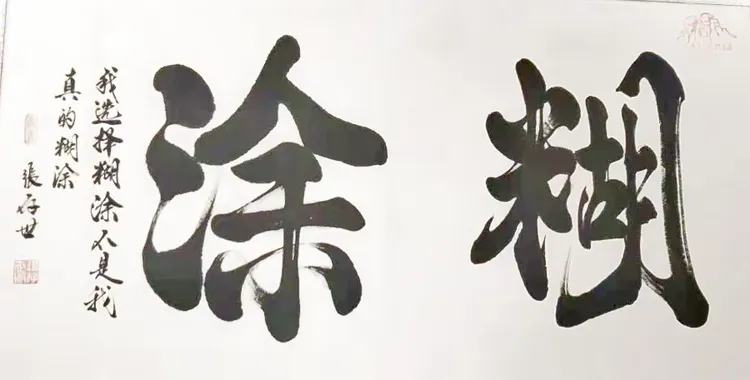 糊涂
我选择糊涂不是我
真的糊涂
張存世